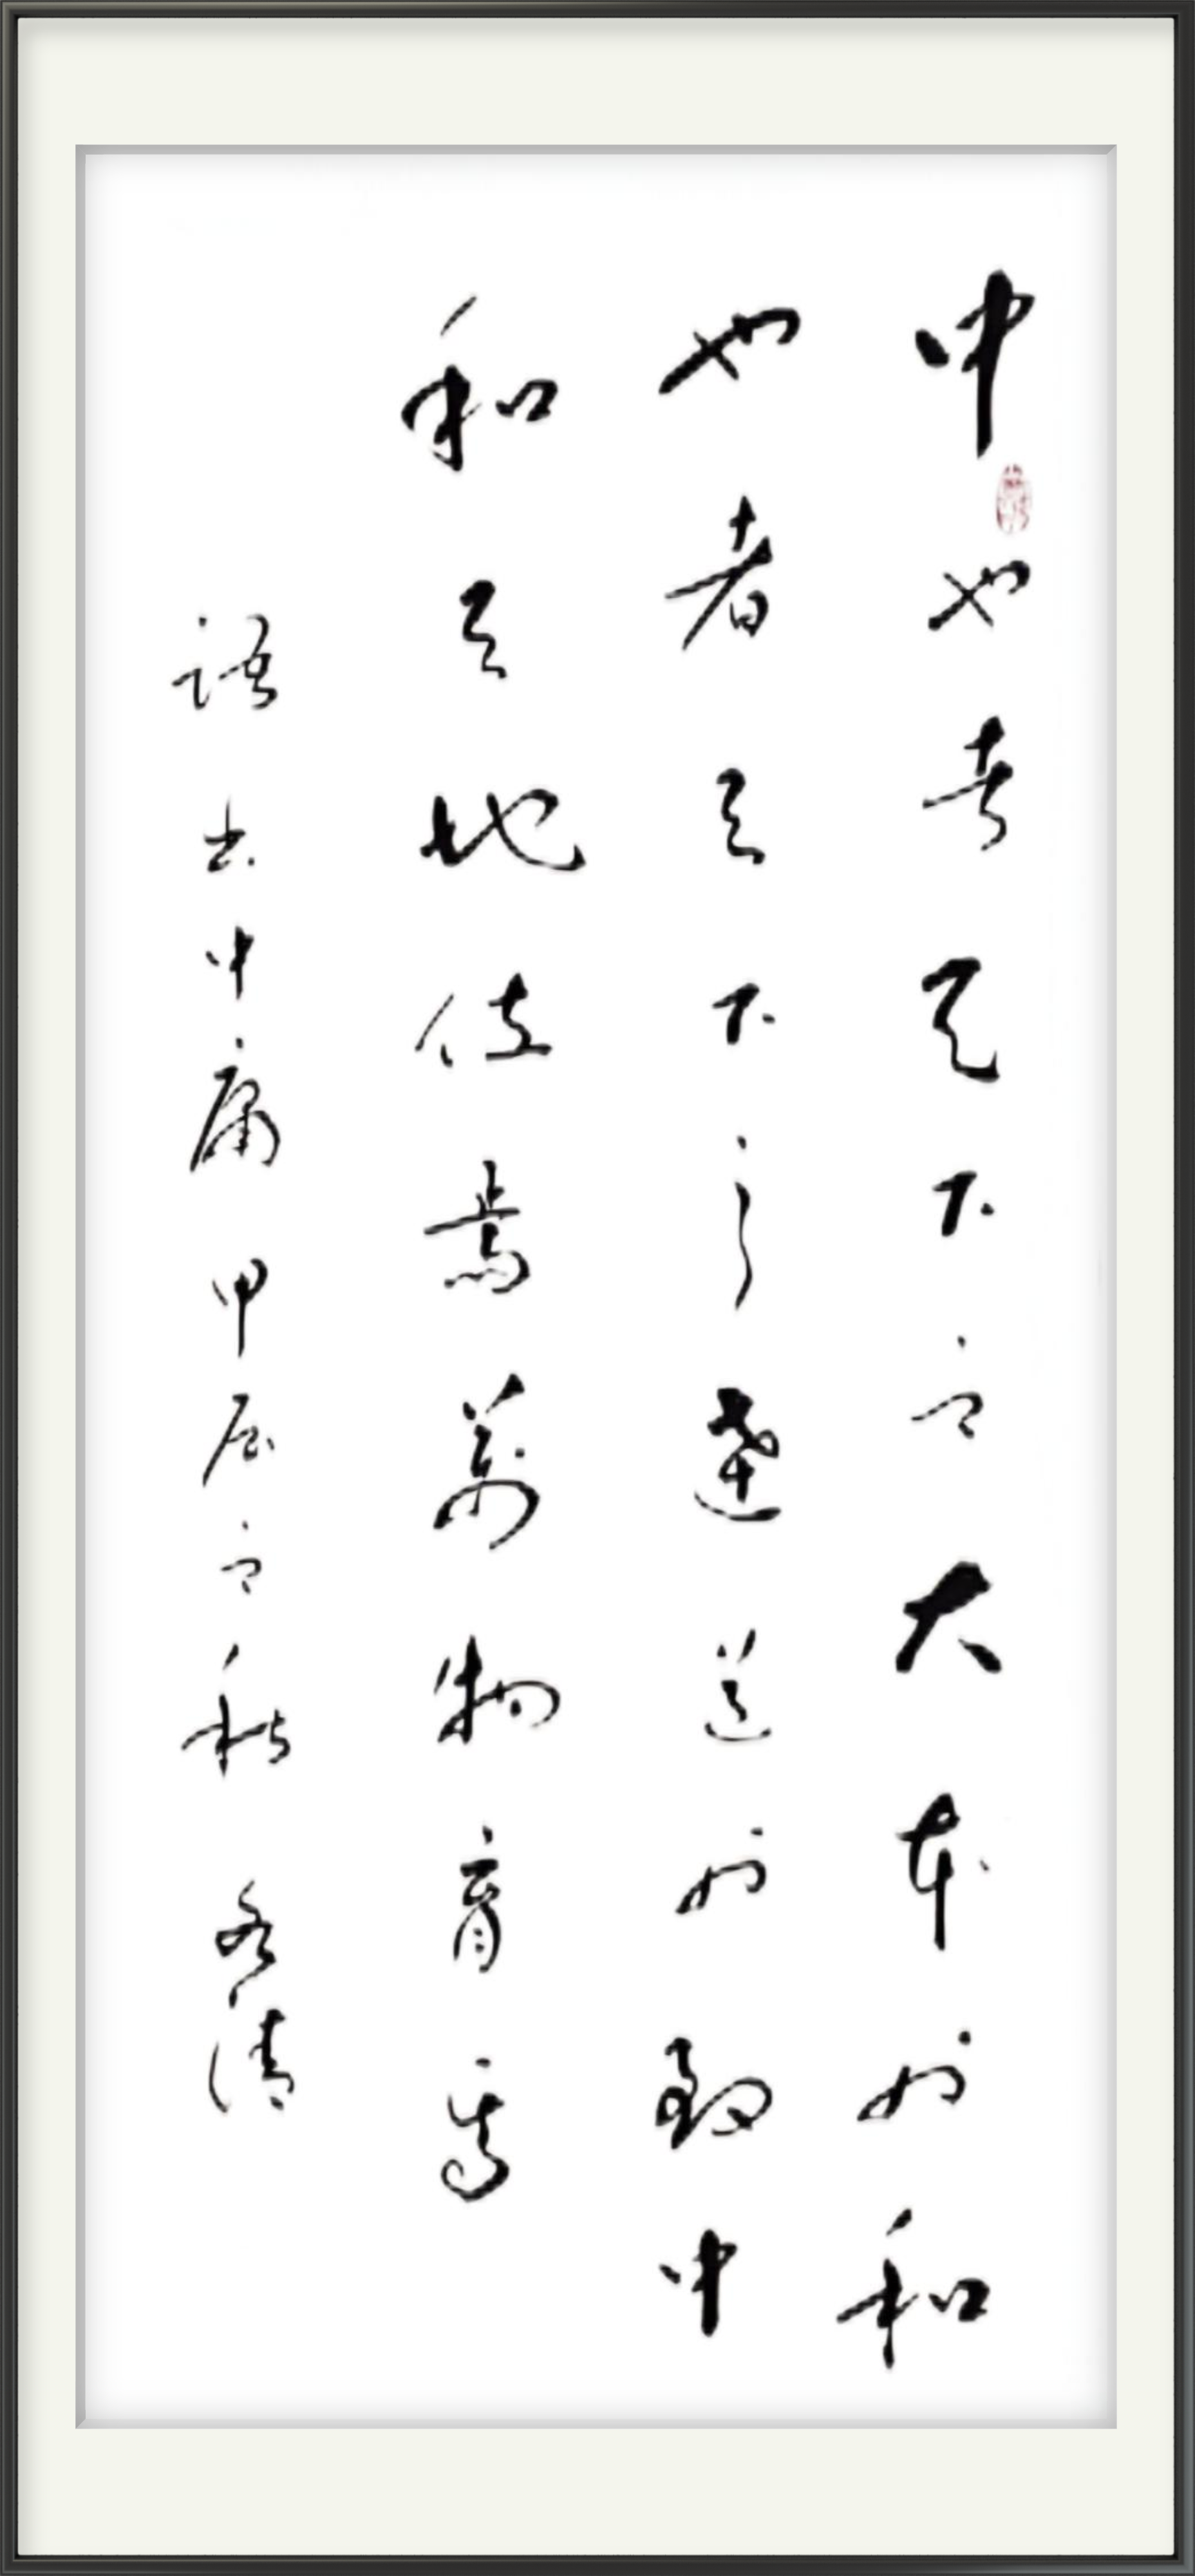 中也者天下之大本也和
也者天下之達道也致中
和天地位焉萬物育焉
語出中庸甲辰之秋 清